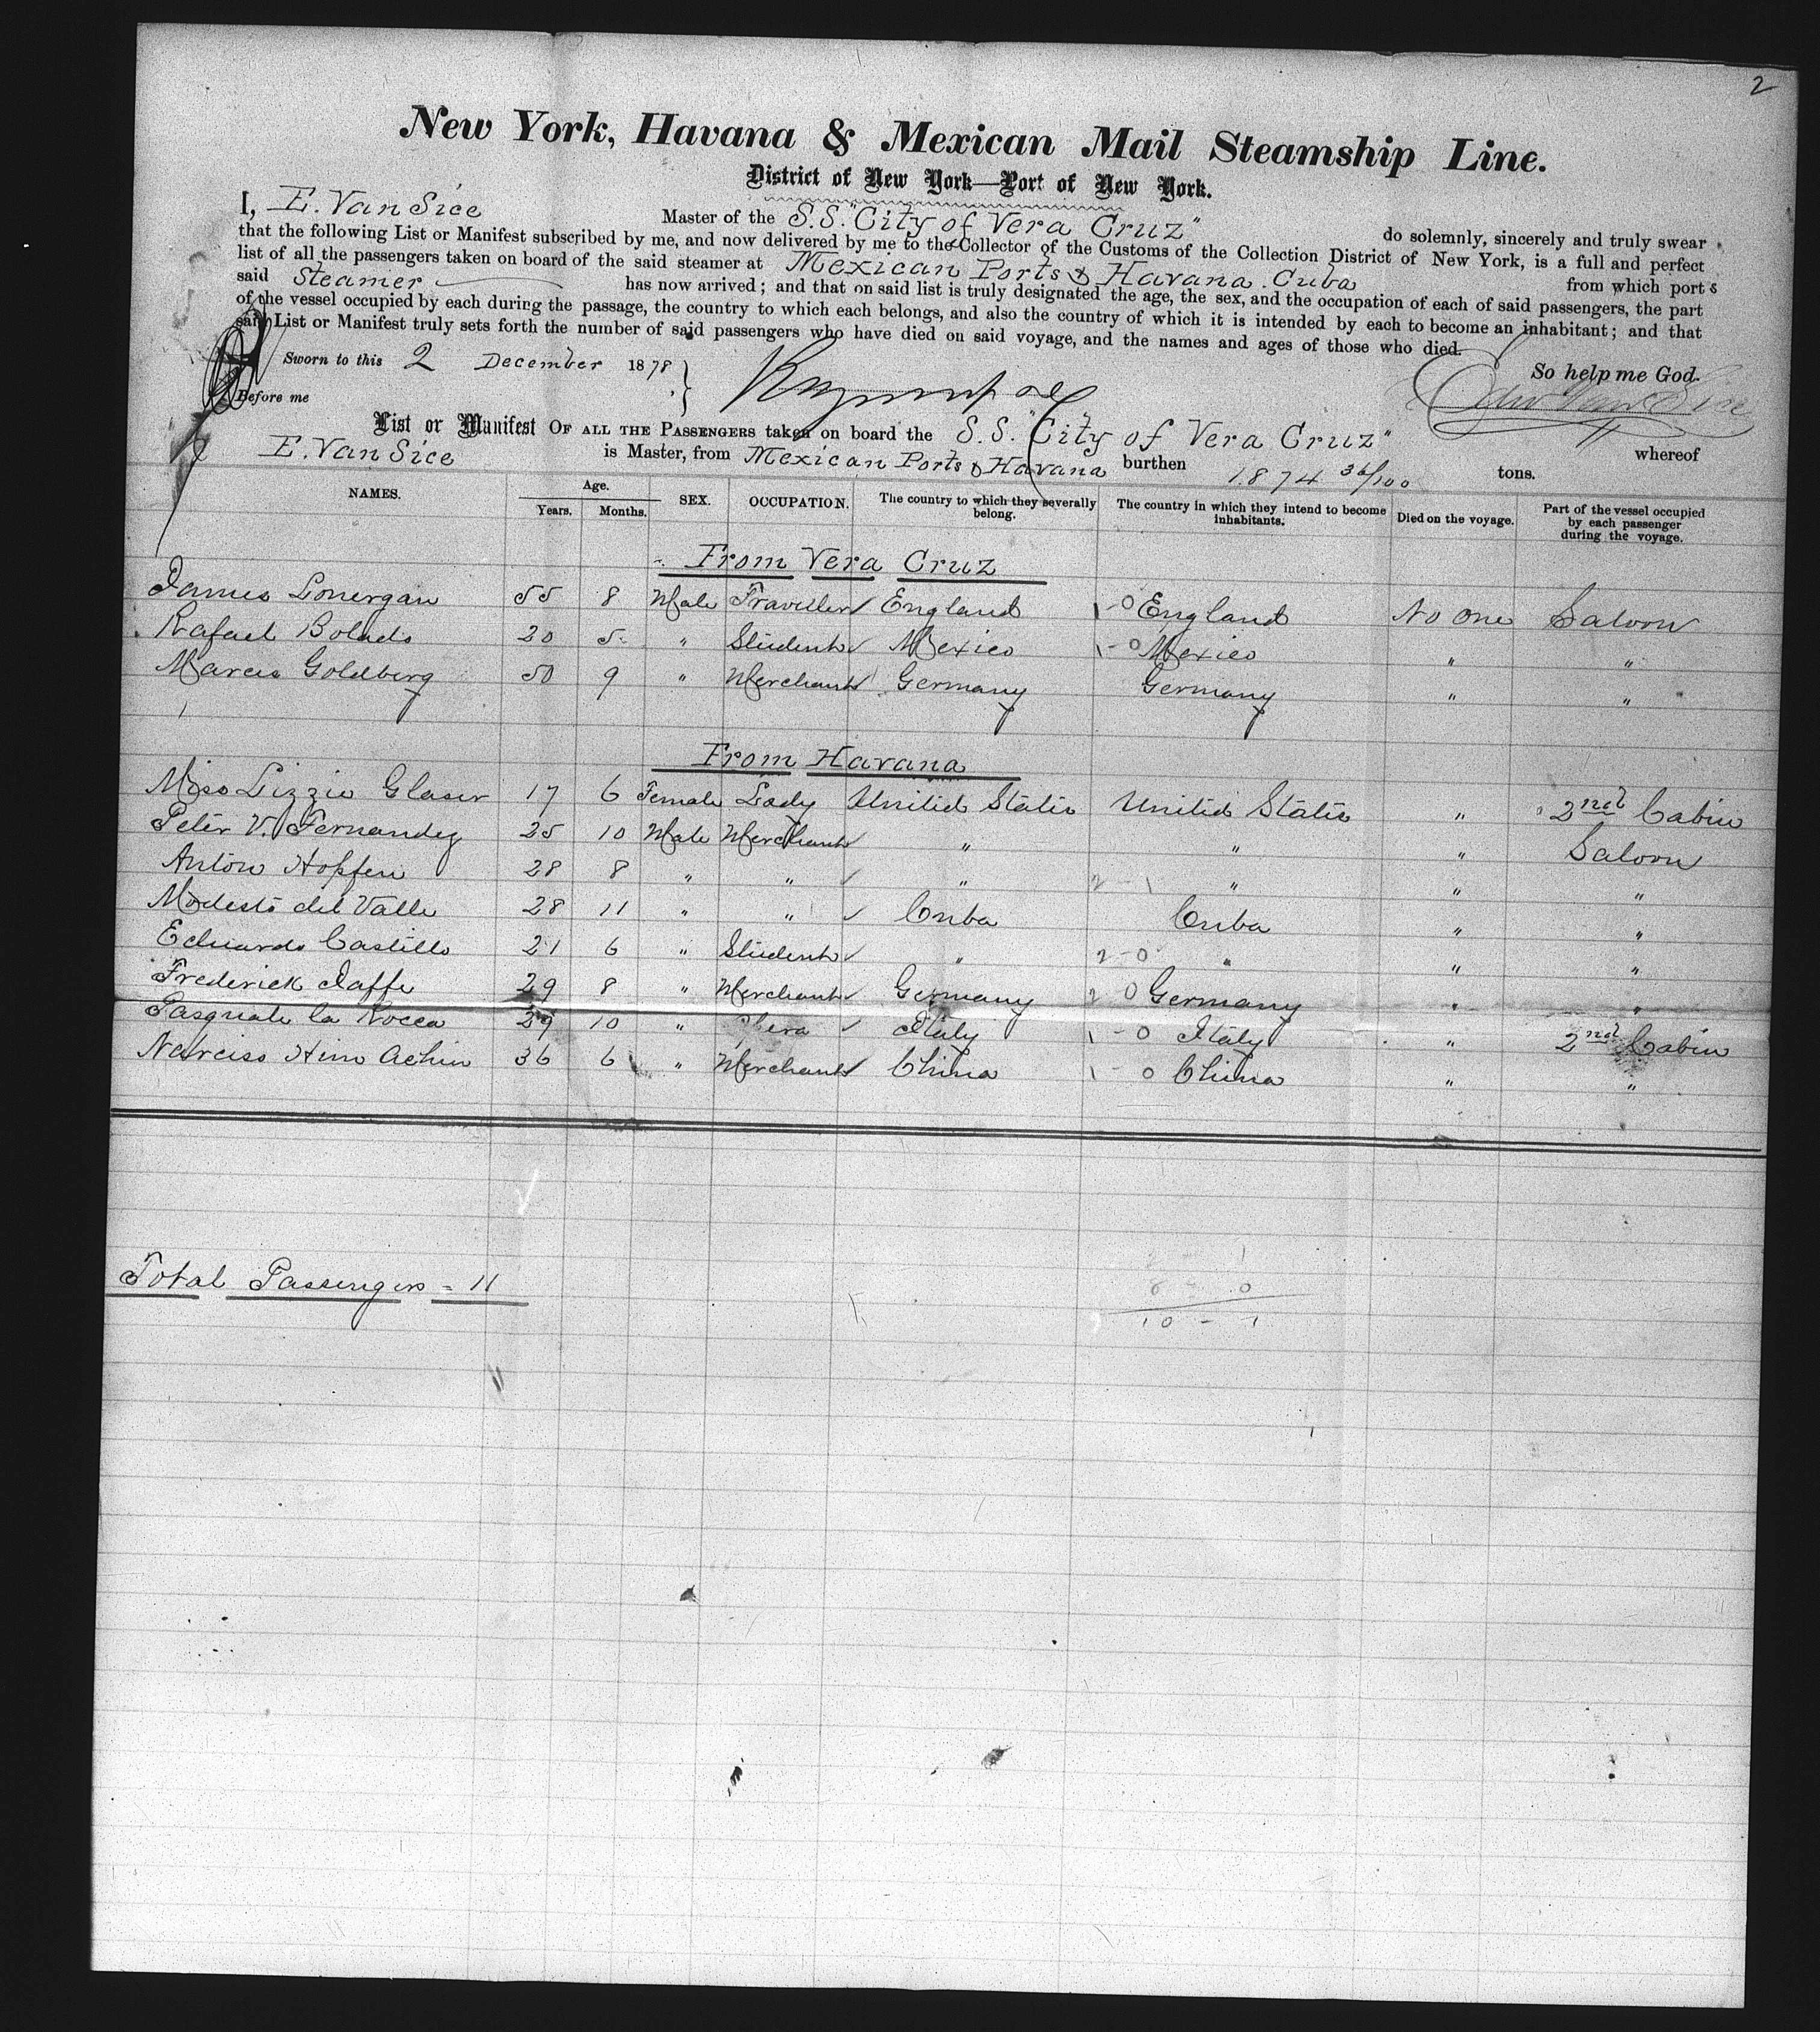 2
New York, Havana & Mexican Mail Steamship Line.
District of New York—Port of New York.
I, E. Van Sice Master of the S.S. "City of Vera Cruz" do solemnly, sincerely and truly swear
that the following List or Manifest subscribed by me, and now delivered by me to the Collector of the Customs of the Collection District of New York, is a full and perfect
list of all the passengers taken on board of the said steamer at Mexican Ports & Havana. Cuba from which ports
said Steamer has now arrived; and that on said list is truly designated the age, the sex, and the occupation of each of said passengers, the part
of the vessel occupied by each during the passage, the country to which each belongs, and also the country of which it is intended by each to become an inhabitant; and that
said List or Manifest truly sets forth the number of said passengers who have died on said voyage, and the names and ages of those who died.
Sworn to this 2 December 1878 So help me God.
Before me
List or Manifest OF ALL THE PASSENGERS taken on board the S.S. "City of Vera Cruz" whereof
E. Van Sice is Master, from Mexican Ports & Havana burthen 1874 36/100 tons.
NAMES. Age. Years. Months. SEX. OCCUPATION. The country to which they severally belong. The country in which they intend to become inhabitants. Died on the voyage. Part of the vessel occupied by each passenger during the voyage.
From Vera Cruz
James Lonergan 55 8 Male Traveller England 1-0 England No One Saloon
Rafael Bolado 20 5 " Student Mexico 1-0 Mexico " "
Marcus Goldberg 50 9 " Merchant Germany Germany " "
From Havana
Miss Lizzie Glaser 17 6 Female Lady United States United States " 2nd Cabin
Peter V. Fernandez 25 10 Male Merchant " " " Saloon
Anton Hopfen 28 8 " " " 2-1 " " "
Modesto del Valle 28 11 " " Cuba Cuba " "
Eduardo Castillo 21 6 " Student " 2-0 " " "
Frederick Jaffe 29 8 " Merchant Germany 2 0 Germany " "
Pasquale la Rocca 29 10 " Italy 1-0 Italy " 2nd Cabin
Narciso Him Achin 36 6 " Merchant China 1-0 China " "
Total Passengers = 11
2 1
8 - 0
10 - 1